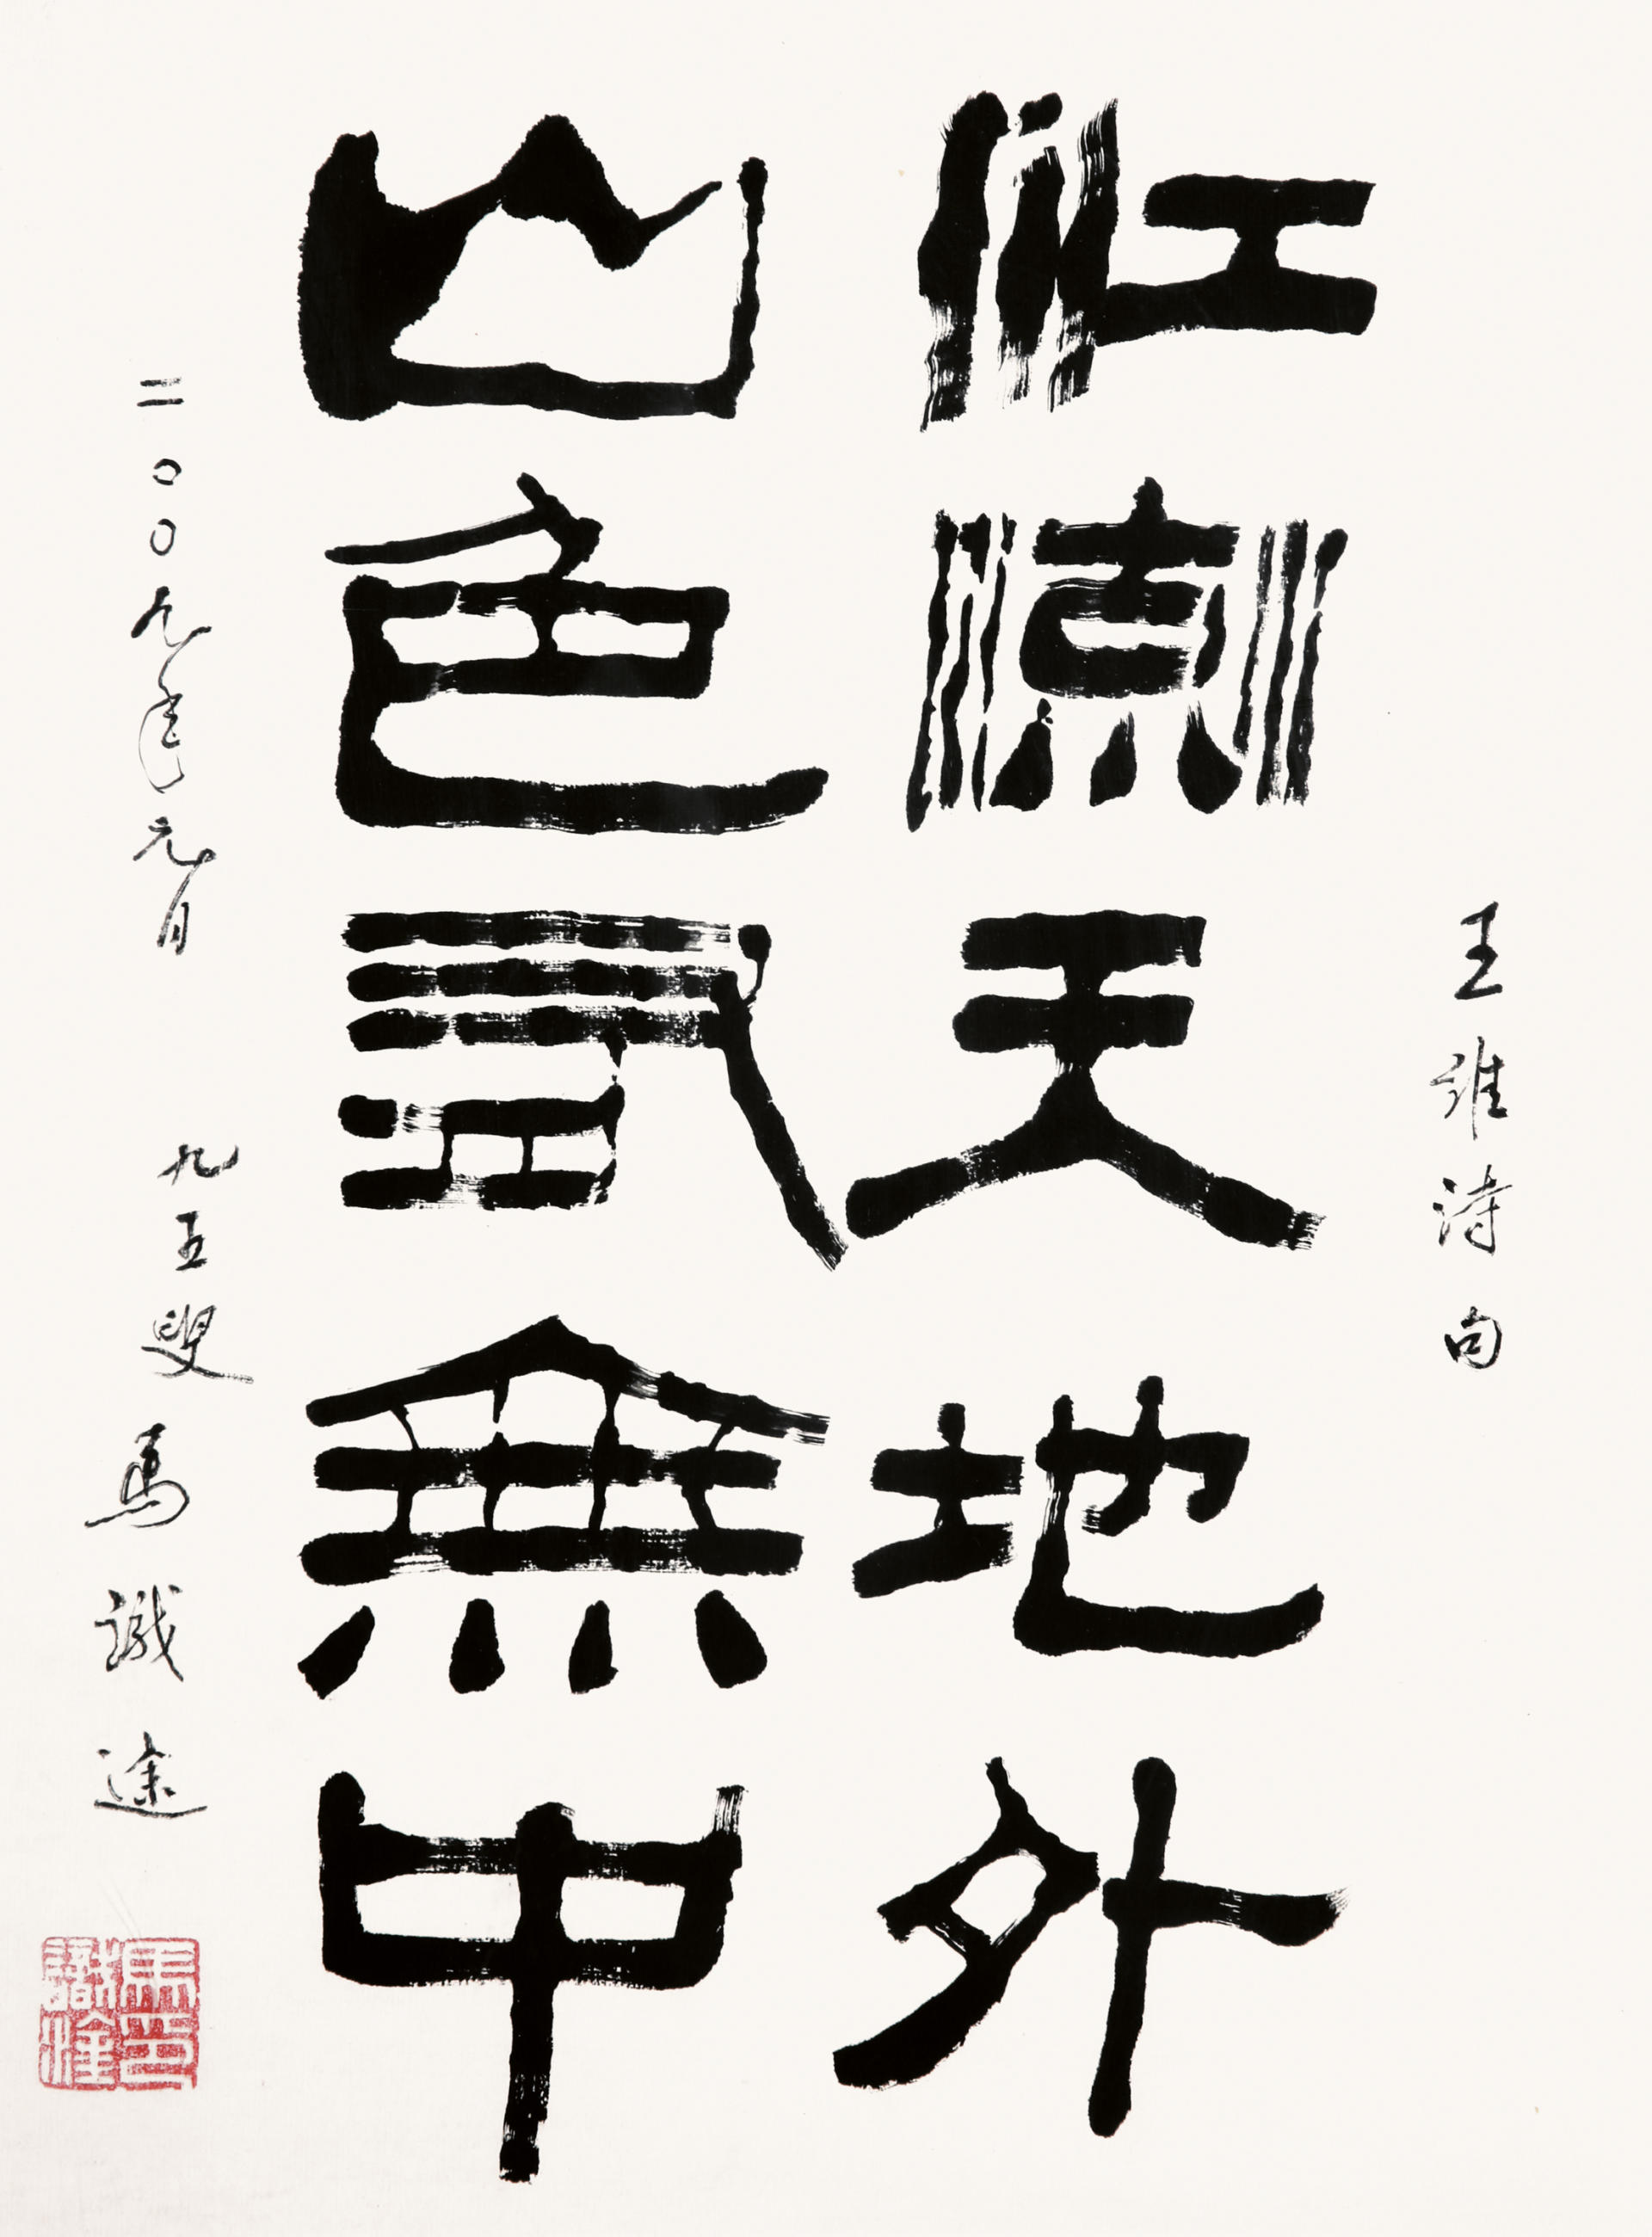 王維詩句
江流天地外
山色有無中
二〇〇九年元月 九五叟 馬識途
馬識途印